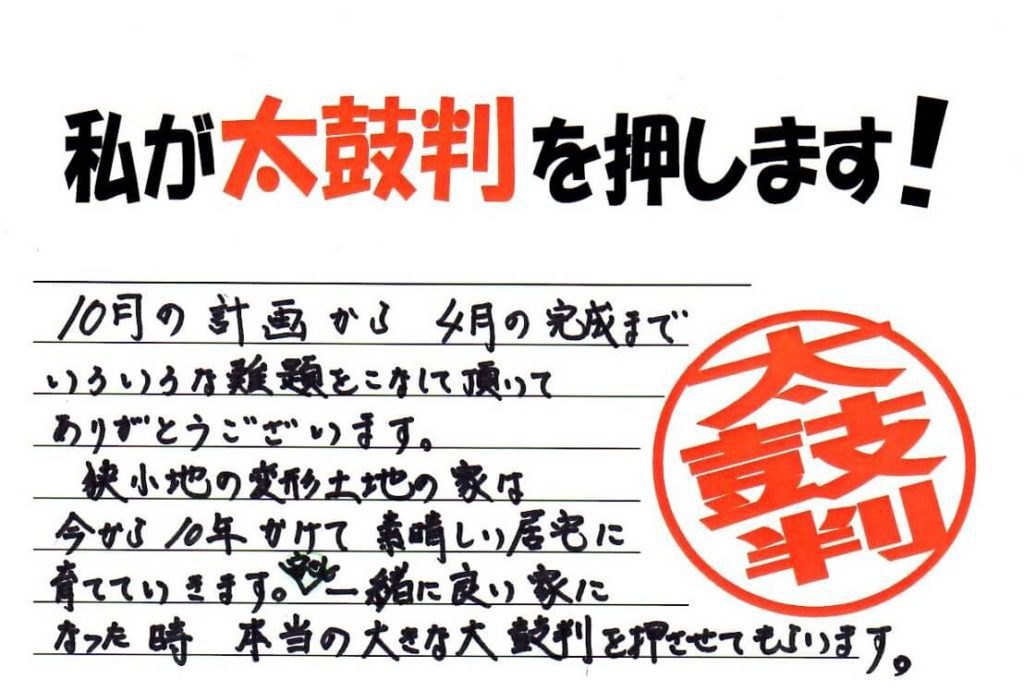 私が太鼓判を押します!
10月の計画から 4月の完成まで
いろいろな難題をこなして頂いて
ありがとうございます。
狭小地の変形土地の家は
今から10年かけて 素晴しい居宅に
育てていきます。 一緒に良い家に
なった時 本当の大きな太鼓判を押させてもらいます。
太
鼓
判